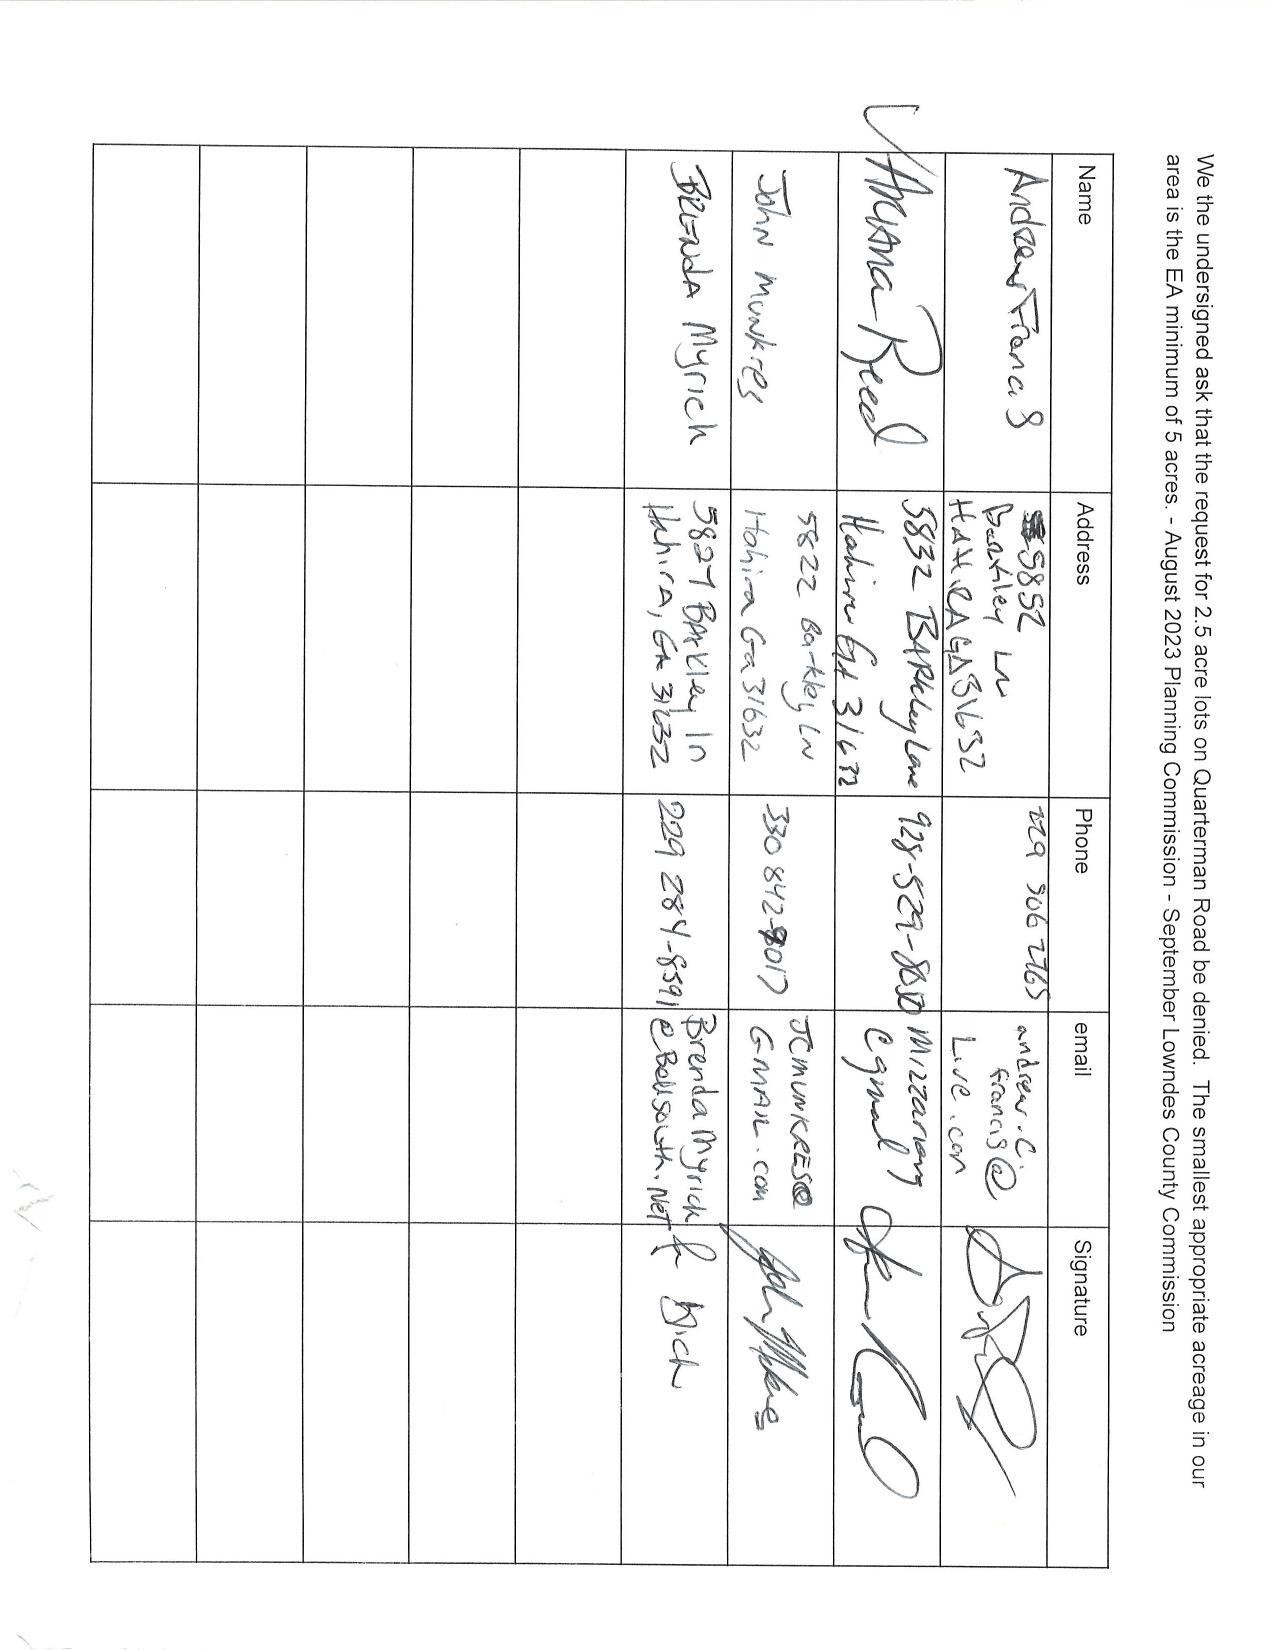 We the undersigned ask that the request for 2.5 acre lots on Quarterman Road be denied. The smallest appropriate acreage in our
area is the EA minimum of 5 acres. - August 2023 Planning Commission - September Lowndes County Commission
Name Address Phone email Signature
Andrew Francis
5852
Barkley LN
HAHIRA GA 31632
229 506 2765
andrew.C.
francis@
Live.com
Reed
5832 BARkley Lane
Hahira GA 31632
928-529-8050
John Munkres
5822 Barkley LN
Hahira Ga 31632
330 842-8017
JCMUNKRES@
GMAIL.com
BRENdA Myrick
5827 BArkley ln
HahirA, GA 31632
229 284-8591
BrendaMyrick
@Bellsouth.Net